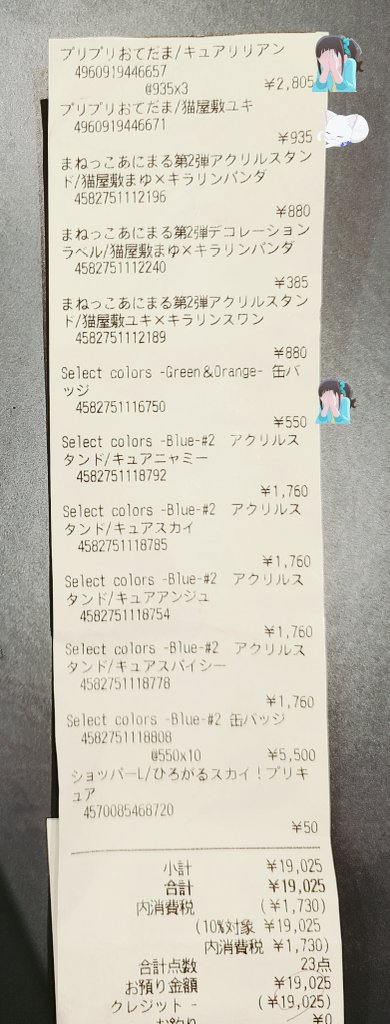 プリプリおてだま/キュアリリアン
4960919446657
@935x3 ¥2,805
プリプリおてだま/猫屋敷ユキ
4960919446671
¥935
まねっこあにまる第2弾アクリルスタン
ド/猫屋敷まゆ×キラリンパンダ
4582751112196
¥880
まねっこあにまる第2弾デコレーション
ラベル/猫屋敷まゆ×キラリンパンダ
4582751112240
¥385
まねっこあにまる第2弾アクリルスタン
ド/猫屋敷ユキ×キラリンスワン
4582751112189
¥880
Select colors -Green&Orange- 缶バ
ッジ
4582751116750
¥550
Select colors -Blue-#2 アクリルス
タンド/キュアニャミー
4582751118792
¥1,760
Select colors -Blue-#2 アクリルス
タンド/キュアスカイ
4582751118785
¥1,760
Select colors -Blue-#2 アクリルス
タンド/キュアアンジュ
4582751118754
¥1,760
Select colors -Blue-#2 アクリルス
タンド/キュアスパイシー
4582751118778
¥1,760
Select colors -Blue-#2 缶バッジ
4582751118808
@550x10 ¥5,500
ショッパーL/ひろがるスカイ!プリキ
ュア
4570085468720
¥50
小計 ¥19,025
合計 ¥19,025
内消費税 (¥1,730)
(10%対象 ¥19,025
内消費税 ¥1,730)
合計点数 23点
お預り金額 ¥19,025
クレジット - (¥19,025)
お釣り ¥0